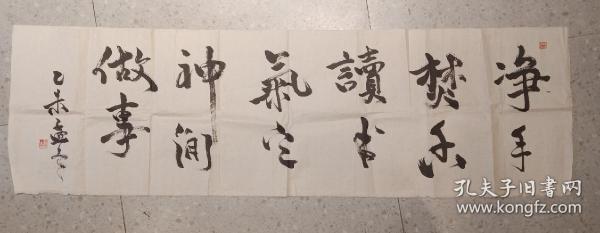 净手
焚香
讀书
氣定
神闲
做事
乙未孟冬
孔夫子旧书网
www.kongfz.com